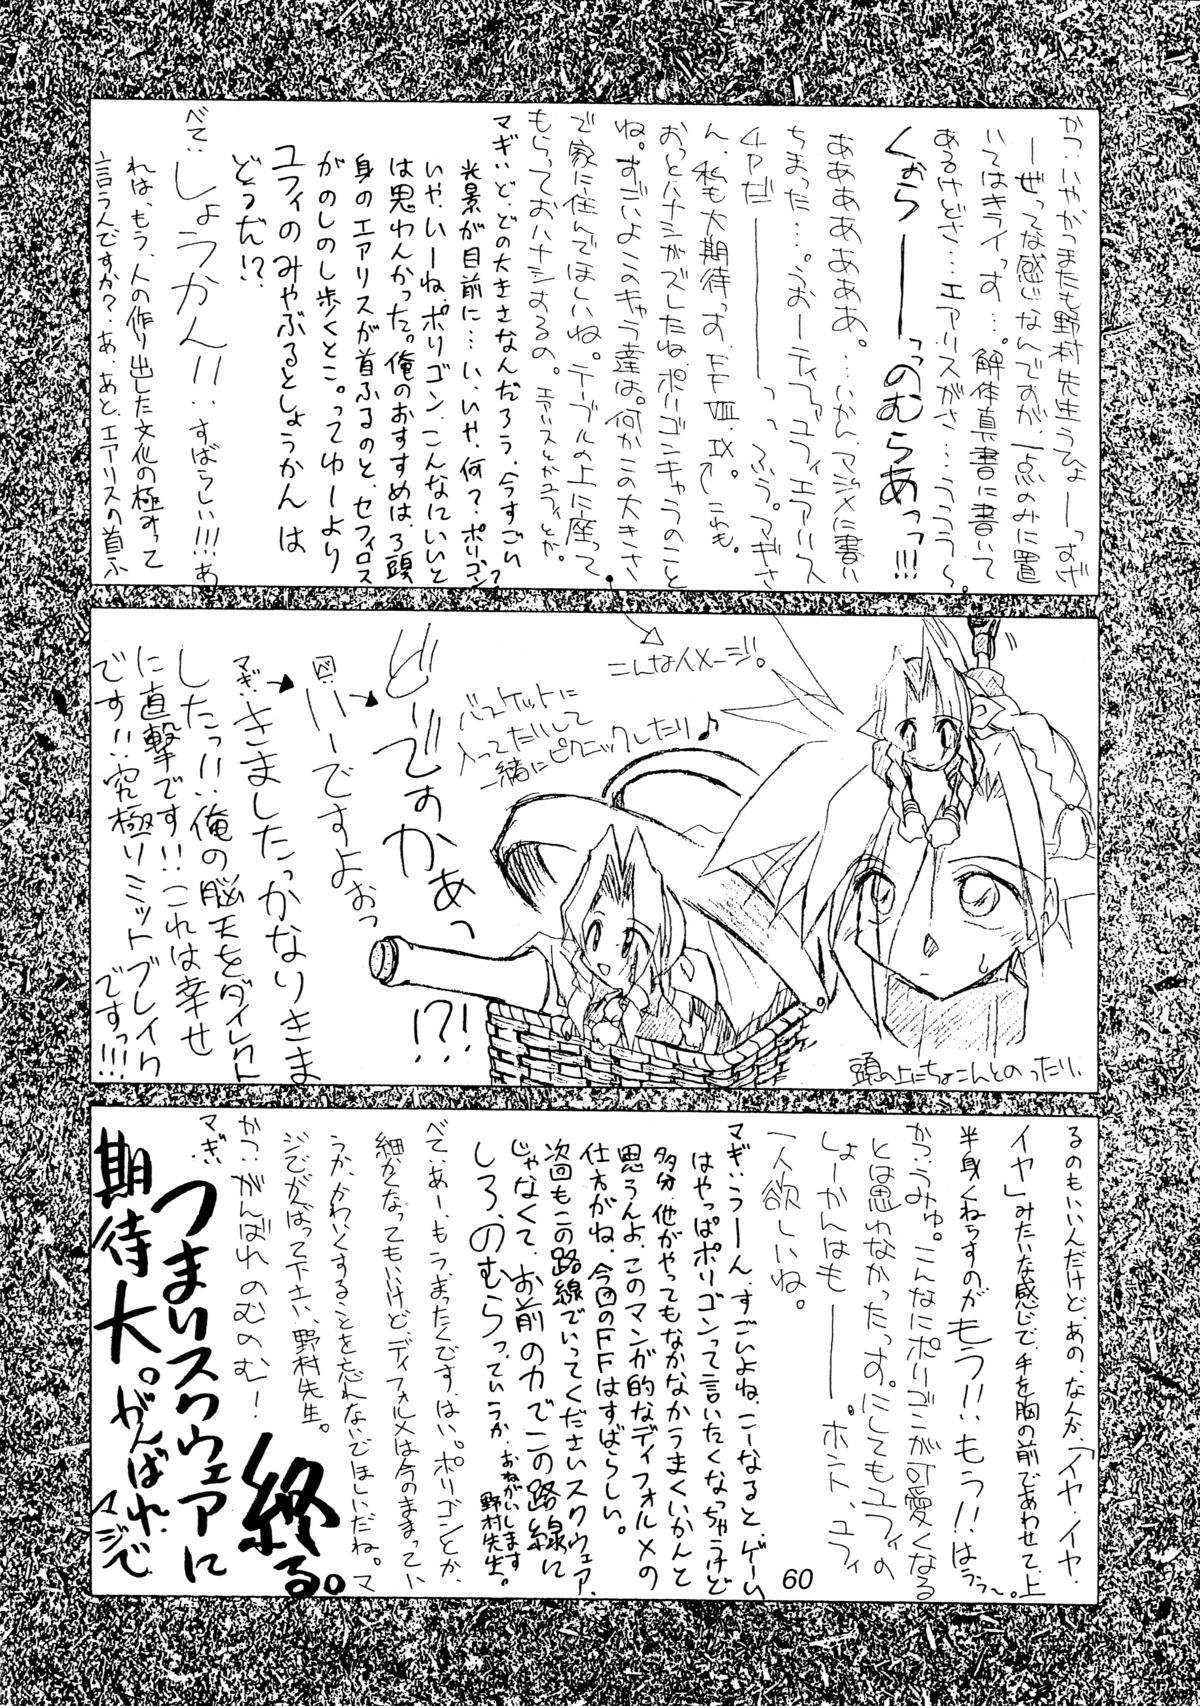 かつ：いやかつまたも野村先生うひょーーっすげ
ーーぜってな感じなんですが、一点のみに置
いてはキライっす…。解体真書に書いて
あるけどさ…エアリスがさ…うううう〜。
くぉら———っっのむらあっ!!!
ああああああああ。…いかん、マジメに書い
ちまった…。うおーティファユフィエアリス
チャだ————っっ ふう。マギさ
ん、私も大期待っす、FFⅧ、Ⅸ。
これも。
おっとハナシがズレたね、ポリゴンキャラのこと
ね。すごいよこのキャラ達は。何かこの大きさ
で家に住んでほしいね。テーブルの上に座って
もらっておハナシするの。エアリスとかユフィとか。
マギ：ど、どの大きさなんだろう、今すごい
光景が目前に…い、いや、何？ポリゴン？
いや、いーね、ポリゴン、こんなにいいと
は思わんかった。俺のおすすめは、3頭
身のエアリスが首ふるのと、セフィロス
がのしのし歩くとこ。ってゆーより
ユフィのみやぶるとしょうかんは
どうだ!?
べて：しょうかん!!：すばらしい!!!あ
れは、もう、人の作り出した文化の極みって
言うんですか？あ、あと、エアリスの首ふ
こんなイメージ。
バスケットに
入ってたいして
一緒にピクニックしたり♪
頭の上にちょこんとのったり、
ど〜ですかあっ!?!
いーですよおっ
マギ：きましたっかなりきま
したっ!!!俺の脳天をダイレクト
に直撃です!!これは幸せ
です!!：究極リミットブレイク
ですっ!!!
るのもいいんだけど、あの、なんか、「イヤ、イヤ、
イヤ」みたいな感じで、手を胸の前であわせて、上
半身くねらすのがもう!!：もう!!はうう〜。
かつ：うみゅ。こんなにポリゴンが可愛くなる
とは思わなかったっす。にしてもユフィの
しょーかんはも————。ホント、ユフィ
一人欲しいね。
マギ：うーん、すごいよね、こーなると、ゲーム
はやっぱポリゴンって言いたくなっちゃうけど
多分、他がやってもなかなかうまくいかんと
思うんよ、このマンガ的なディフォルメの
仕方がね、今回のFFはすばらしい。
次回もこの路線でいってくださいスクウェア、
じゃなくて、お前の力でこの路線に
しろ、のむらっ、ていうか、おねがいします
野村先生。
べて：あー、もう、まったくです、はい。ポリゴンとか、
細かくなってもいいけどディフォルメは今のままってい
うか、かわいくすることを忘れないでほしいだね。マ
ジでがんばって下さい、野村先生。
かつ：がんばれのむのむ！
マギ：
つまりスクウェアに
期待大。がんばれ、
マジで
終る。
60